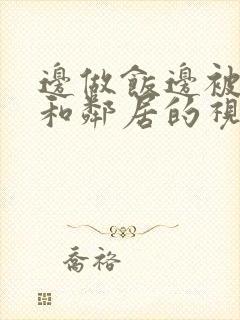 邊做飯邊被
和鄰居的視
喬裕